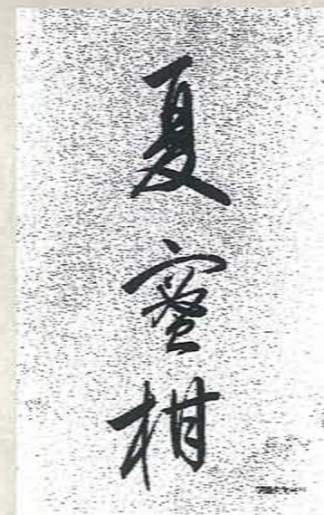 夏蜜柑